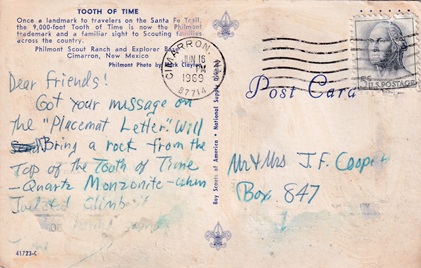 TOOTH OF TIME
Once a landmark to travelers on the Santa Fe Trail,
the 9,000-foot Tooth of Time is now the Philmont
trademark and a familiar sight to Scouting families
across the country.
Philmont Scout Ranch and Explorer Base
Cimarron, New Mexico
Philmont Photo by
CIMARRON
JUN 16
PM
1969
87714
5¢ U.S. POSTAGE
Post Card
Dear Friends!
Got your message on
the "Placemat Letter". Will
Bring a rock from the
Top of the Tooth of Time
- Quartz Monzonite - when
Climb it
Mr & Mrs J.F. Cooper
Box 847
Boy Scouts of America • National Supply
41723-C